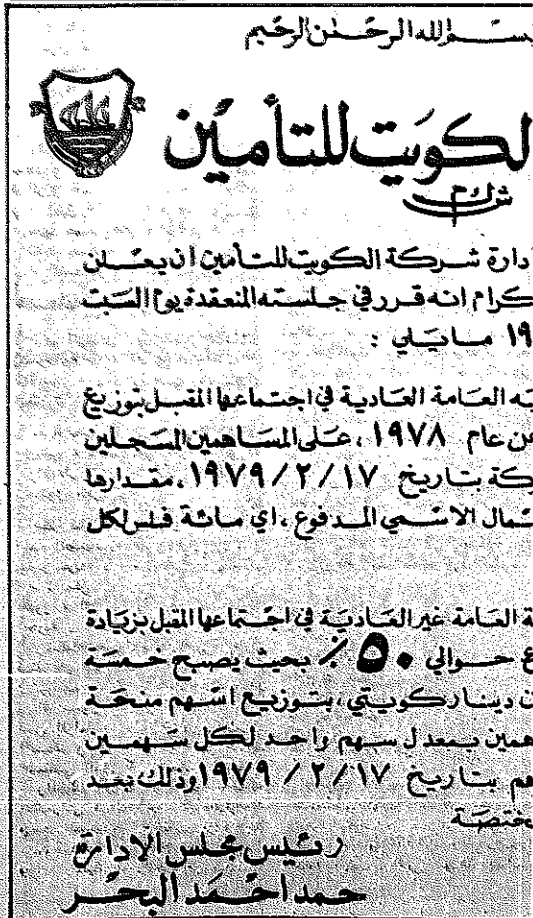 بسم الله الرحمن الرحيم
الكويت للتأمين
ش.م.ك
دارة شركة الكويت للتأمين ان يعلن
كرام انه قرر في جلسته المنعقدة يوم السبت
١٩ مايلي :
العامة العادية في اجتماعها المقبل بتوزيع
عن عام ١٩٧٨ ، على المساهمين المسجلين
كة بتاريخ ١٧ / ٢ / ١٩٧٩ ، مقدارها
المال الاسمي المدفوع ، اي مائة فلس لكل
ة العامة غير العادية في اجتماعها المقبل بزيادة
ع حوالي ٥٠ ٪ بحيث يصبح خمسة
ن دينار كويتي ، بتوزيع اسهم منحة
همين بمعدل سهم واحد لكل سهمين
هم بتاريخ ١٧ / ٢ / ١٩٧٩ وذلك بعد
مختصة
رئيس مجلس الادارة
حمد احمد البحر